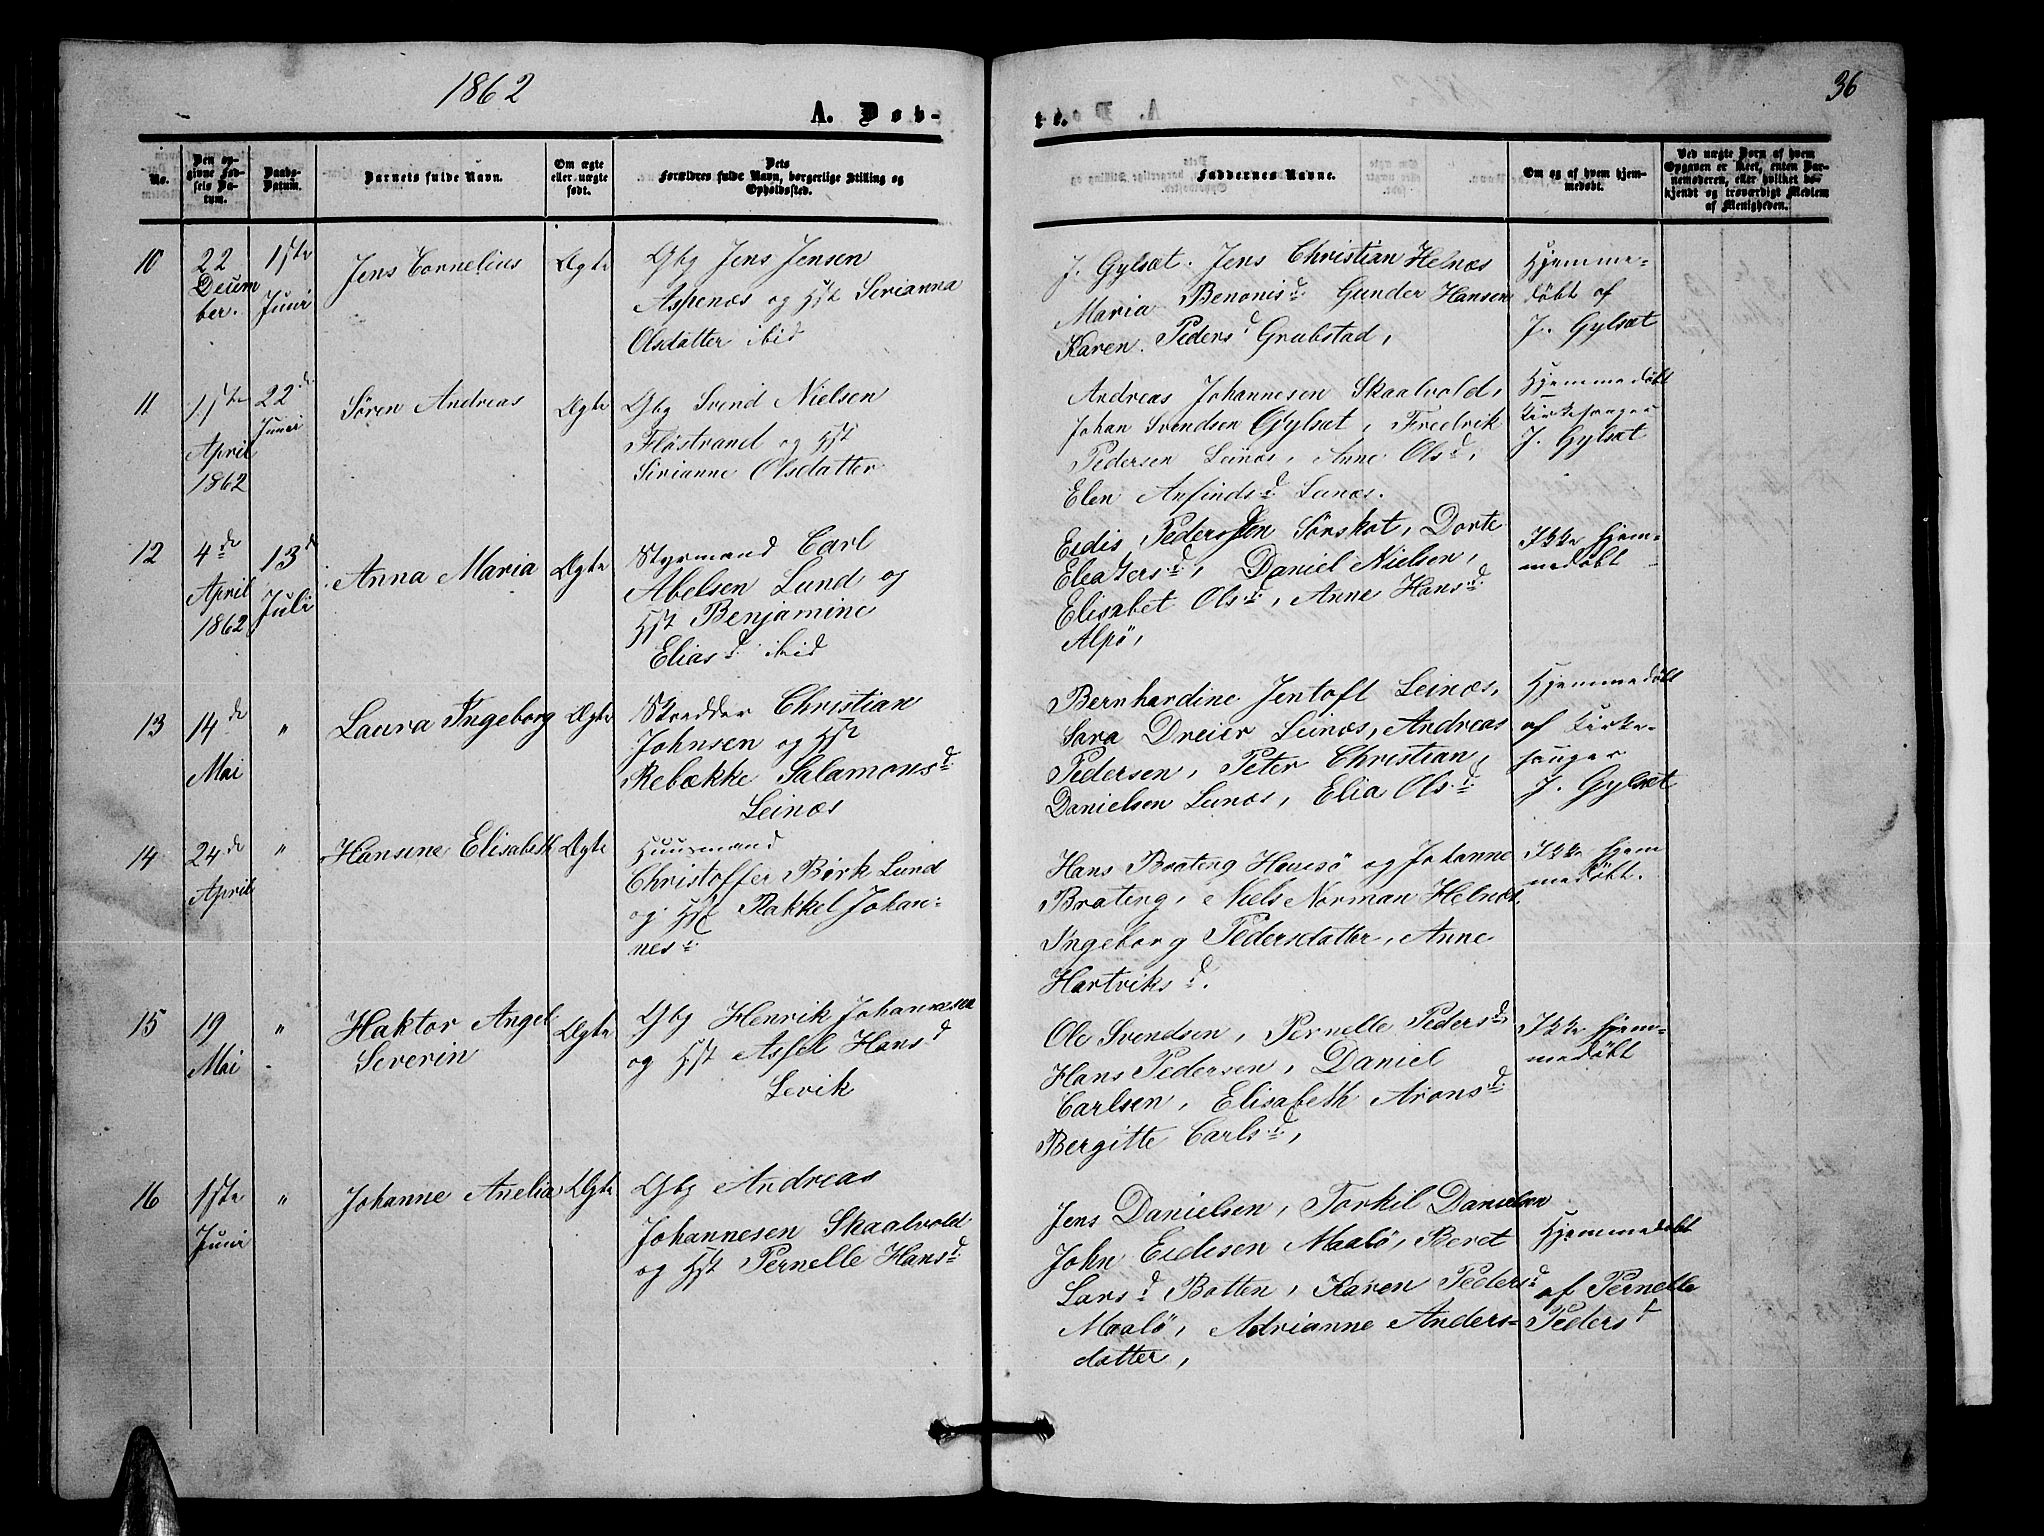 1862
A. Døb-
te.
36
No.
Den op-
givne Fød-
sels Da-
tum.
Daabs-
Datum.
Barnets fulde Navn.
Om ægte
eller uægte
født.
Dets
Forældres fulde Navn, borgerlige Stilling og
Opholdssted.
Faddernes Navne.
Om og af hvem hjem-
medøbt.
Ved uægte Børn af hvem
Opgaven er skeet, enten Bar-
nemoderen, eller hvilket be-
kjendt og troværdigt Medlem
af Menigheden.
10
22
Decem
ber.
1ste
Juni
Jens Cornelius
Ægte
Gbg Jens Jensen
Aspenæs og Hst Serianna
Olsdatter ibid
J. Gylsæt. Jens Christian Helnæs
Maria Benonisd. Gunder Hansen
Karen. Pedersd Grubstad,
Hjemme-
døbt af
J. Gylsæt
11
1ste
April
1862
22de
Juni
Søren Andreas
Ægte
Gbg Svend Nielsen
Fløstrand og Hst
Sirianne Olsdatter
Andreas Johannesen Skaalvold,
Johan Svendsen Gylsæt, Fredrik
Pedersen Leinæs, Anne Olsd,
Elen Anfindsd Leinæs.
Hjemmedøbt
Kirkesanger
J. Gylsæt
12
4de
April
1862
13d
Juli
Anna Maria
Ægte
Styrmand Carl
Abelsen Lund og
Hst Benjamine
Eliasd. ibid
Eidis Pedersen Sørskot, Dorte
Eleasersd., Daniel Nielsen,
Elisabet Olsd., Anne Hansd
Alpö,
Ikke hjem-
medøbt
13
14de
Mai
"
Laura Ingeborg
Ægte
Skrædder Christian
Johnsen og Hst
Rebække Salamonsd.
Leinæs
Bernhardine Jentoft Leinæs,
Sara Dreier Leinæs, Andreas
Pedersen, Peter Christian
Danielsen Leinæs, Elia Olsd.
Hjemmedøbt
af Kirke-
sanger
J. Gylsæt
14
24de
April
"
Hansine Elisabeth
Ægte
Huusmand
Christoffer Birk Lund
og Hst Rakkel Johan-
nesd.
Hans Brateng Havsö og Johanne
Brateng, Niels Norman Helnæs,
Ingeborg Pedersdatter, Anne
Hartviksd.
Ikke hjem
medøbt.
15
19
Mai
"
Haktor Angel
Severin
Ægte
Gbg Henrik Johannesen
og Hst Assel Hansd
Levik
Ole Svendsen, Pernelle Pedersd.
Hans Pedersen, Daniel
Carlsen, Elisabeth Aronsd.
Bergitte Carlsd.,
Ikke hjem-
medøbt
16
1ste
Juni
"
Johanne Anelia
Ægte
Gbg Andreas
Johannesen Skaalvold
og Hst Pernelle Hansd.
Jens Danielsen, Torkil Danielsen
John Eidisen Maalö, Beret
Larsd Botten, Karen Pedersd.
Maalö, Adrianne Anders-
datter,
Hjemmedøbt
af Pernelle
Pedersd